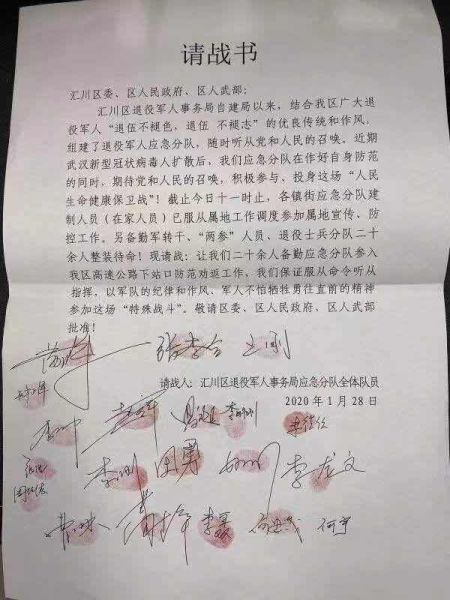 请战书
汇川区委、区人民政府、区人武部:
汇川区退役军人事务局自建局以来，结合我区广大退
役军人“退伍不褪色，退伍 不褪志”的优良传统和作风，
组建了退役军人应急分队，随时听从党和人民的召唤。近期
武汉新型冠状病毒人扩散后，我们应急分队在作好自身防范
的同时，期待党和人民的召唤，积极参与、投身这场“人民
生命健康保卫战”！截止今日十一时止，各镇街应急分队建
制人员（在家人员）已服从属地工作调度参加属地宣传、防
控工作。另备勤军转干、“两参”人员、退役士兵分队二十
余人整装待命！现请战：让我们二十余人备勤应急分队参入
我区高速公路下站口防范劝返工作，我们保证服从命令听从
指挥，以军队的纪律和作风、军人不怕牺牲勇往直前的精神
参加这场“特殊战斗”。敬请区委、区人民政府、区人武部
批准！
请战人：汇川区退役军人事务局应急分队全体队员
2020 年 1 月 28 日
田勇
李龙文
何宇